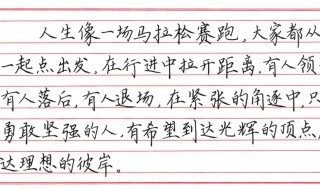 人生像一场马拉松赛跑，大家都从
一起点出发，在行进中拉开距离，有人领
有人落后，有人退场，在紧张的角逐中，只
勇敢坚强的人，有希望到达光辉的顶点，
达理想的彼岸。